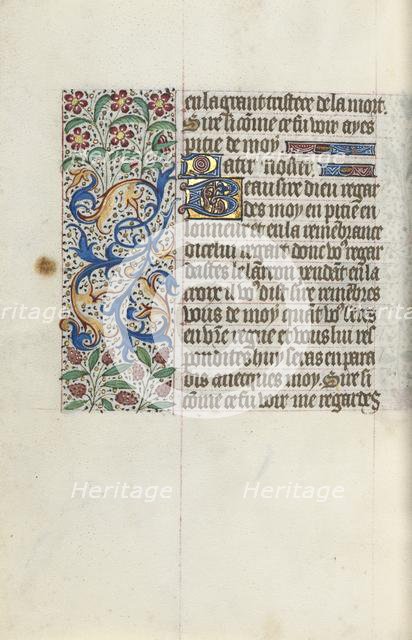 en la grant tristece de la mort.
Sire si cõme ce fu voir ayes
pitie de moy
Pater noster.
Beau sire dieu regar
des moy en pitie en
lonneur et en la remẽbrance
dicelui regart donc vous regar
dastes le larron pendãt en la
croix il voꝰ dist sire remẽbres
vous de moy quãt voꝰ serés
en vr̃e regne et vous lui res
pondites huy seras en para
dis avecques moy. Sire si
cõme ce fu voir me regardes
Heritage
Heritage
Heritage
Heritage
Heritage